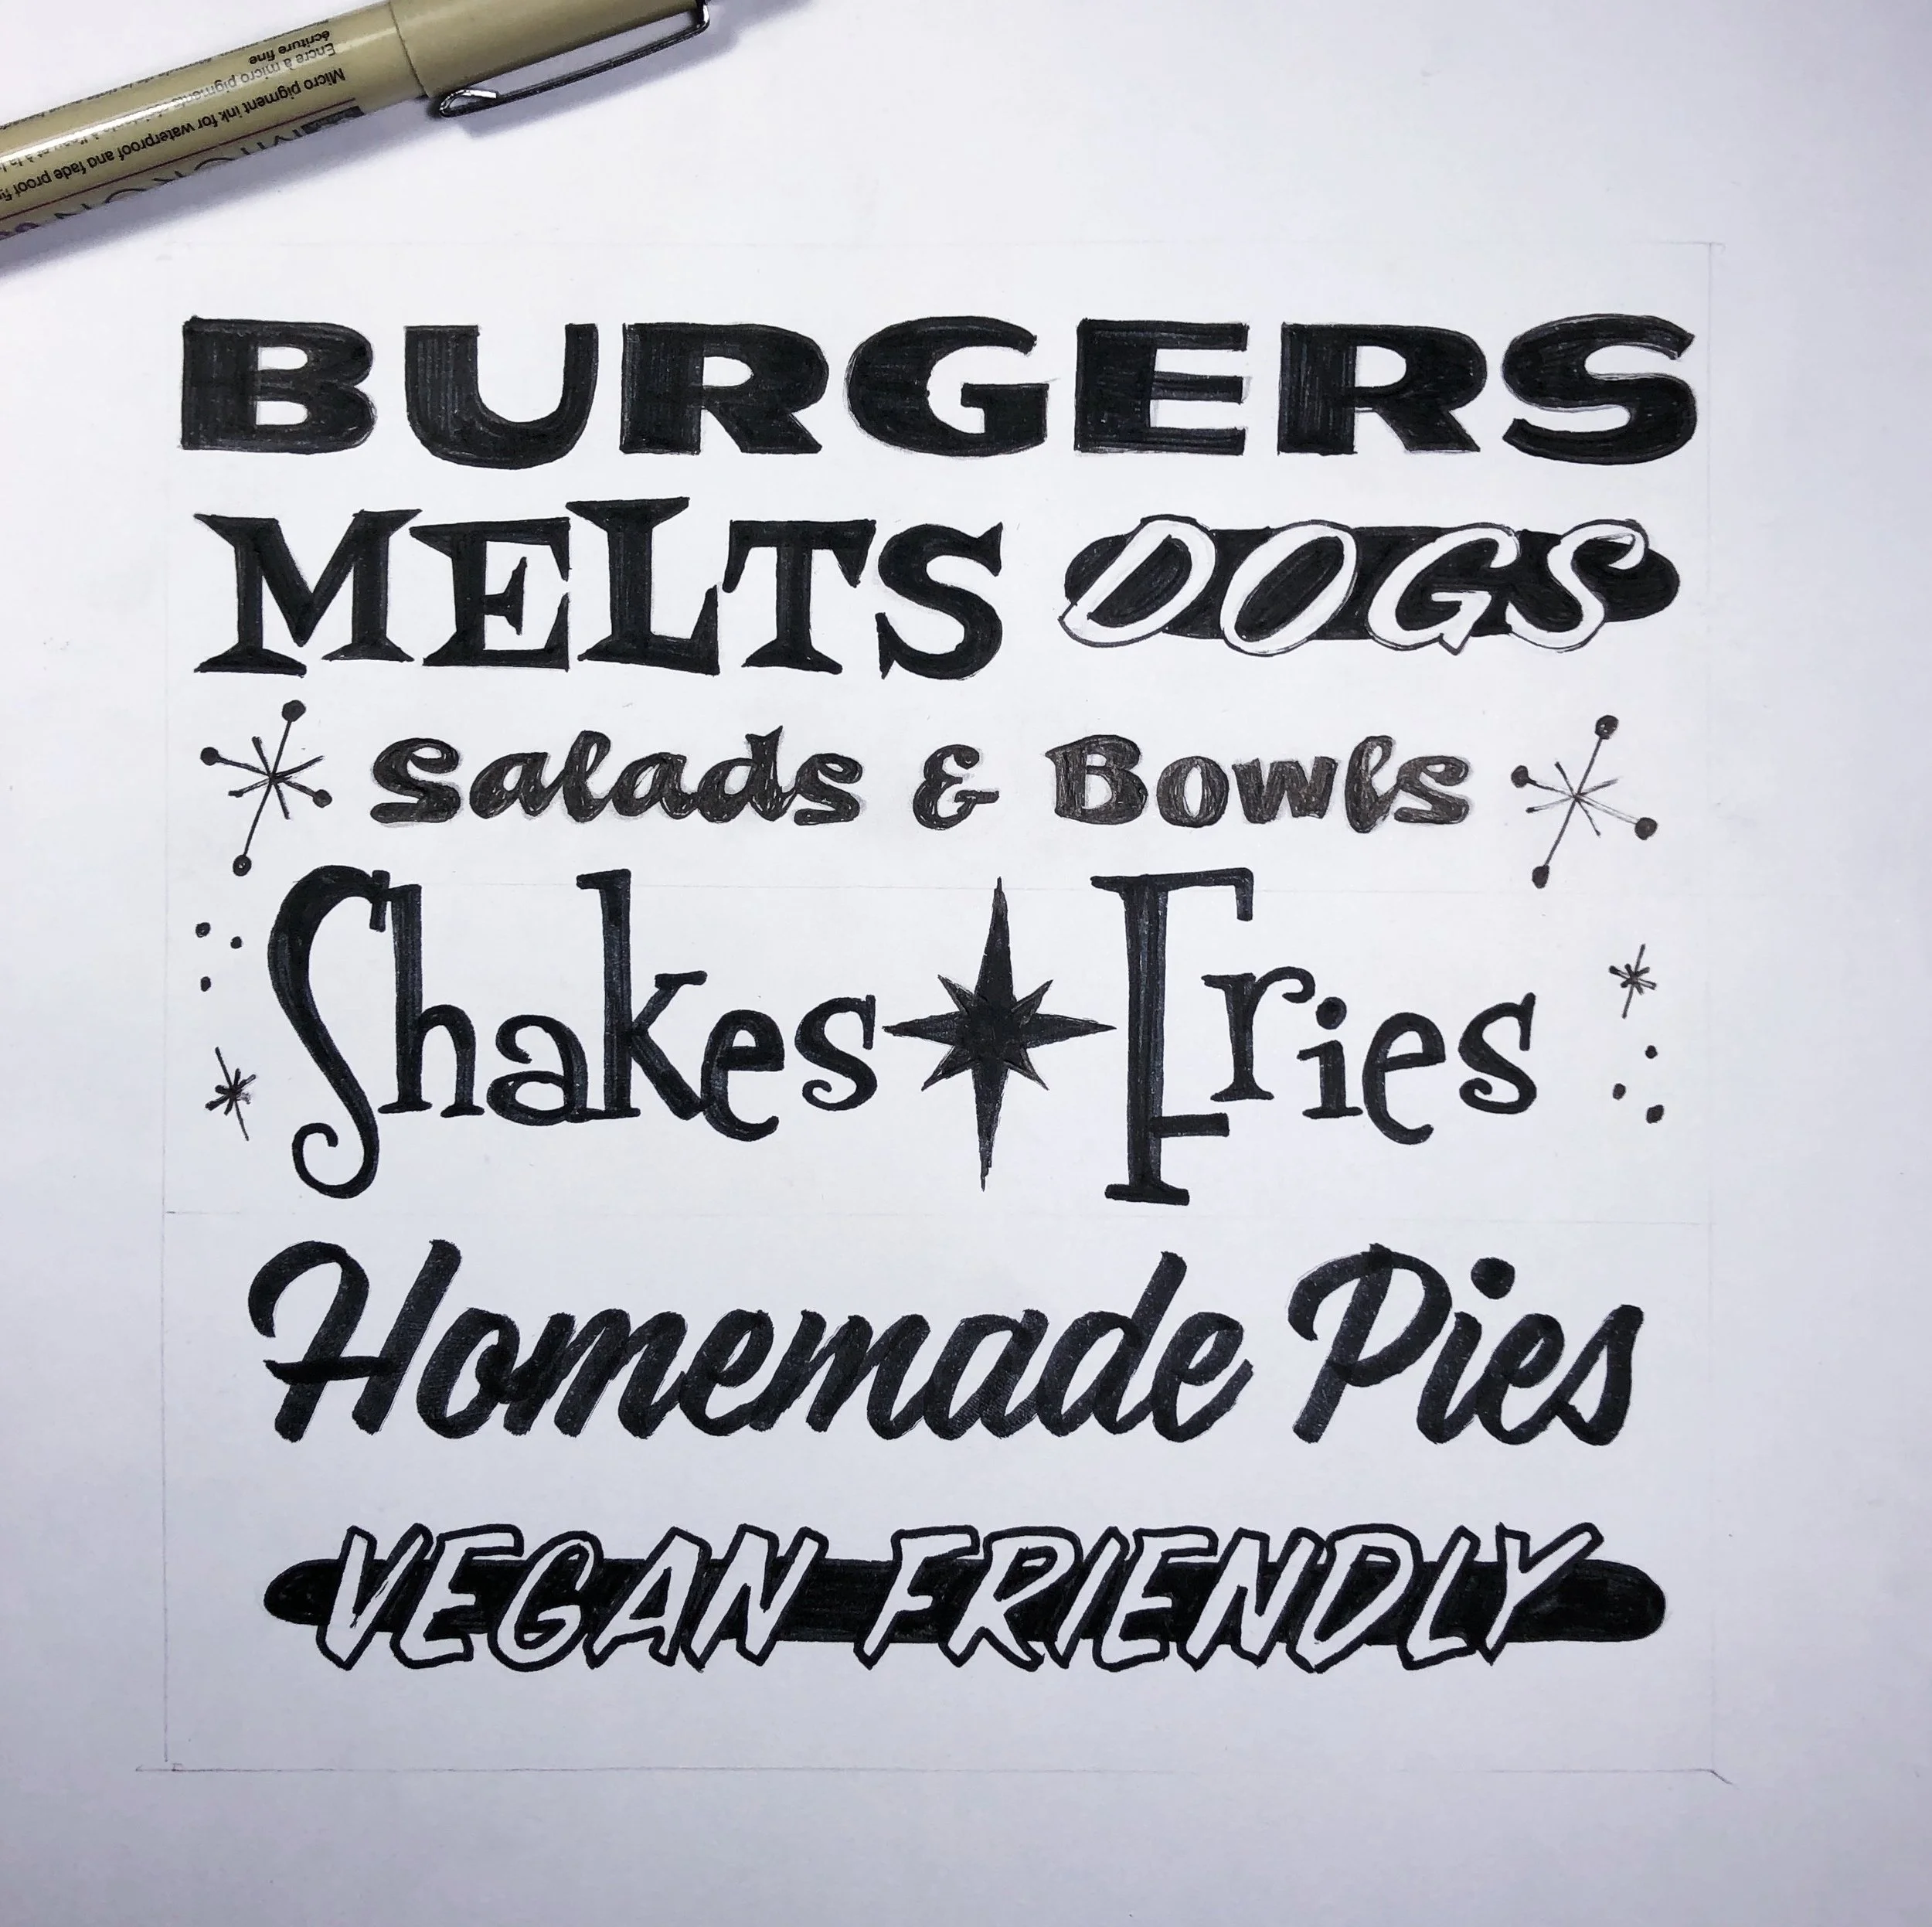 écriture fine
Encre à micro pigments
Micro pigment ink for waterproof and fade proof
MICRON
BURGERS
MELTS DOGS
Salads & Bowls
Shakes Fries
Homemade Pies
VEGAN FRIENDLY